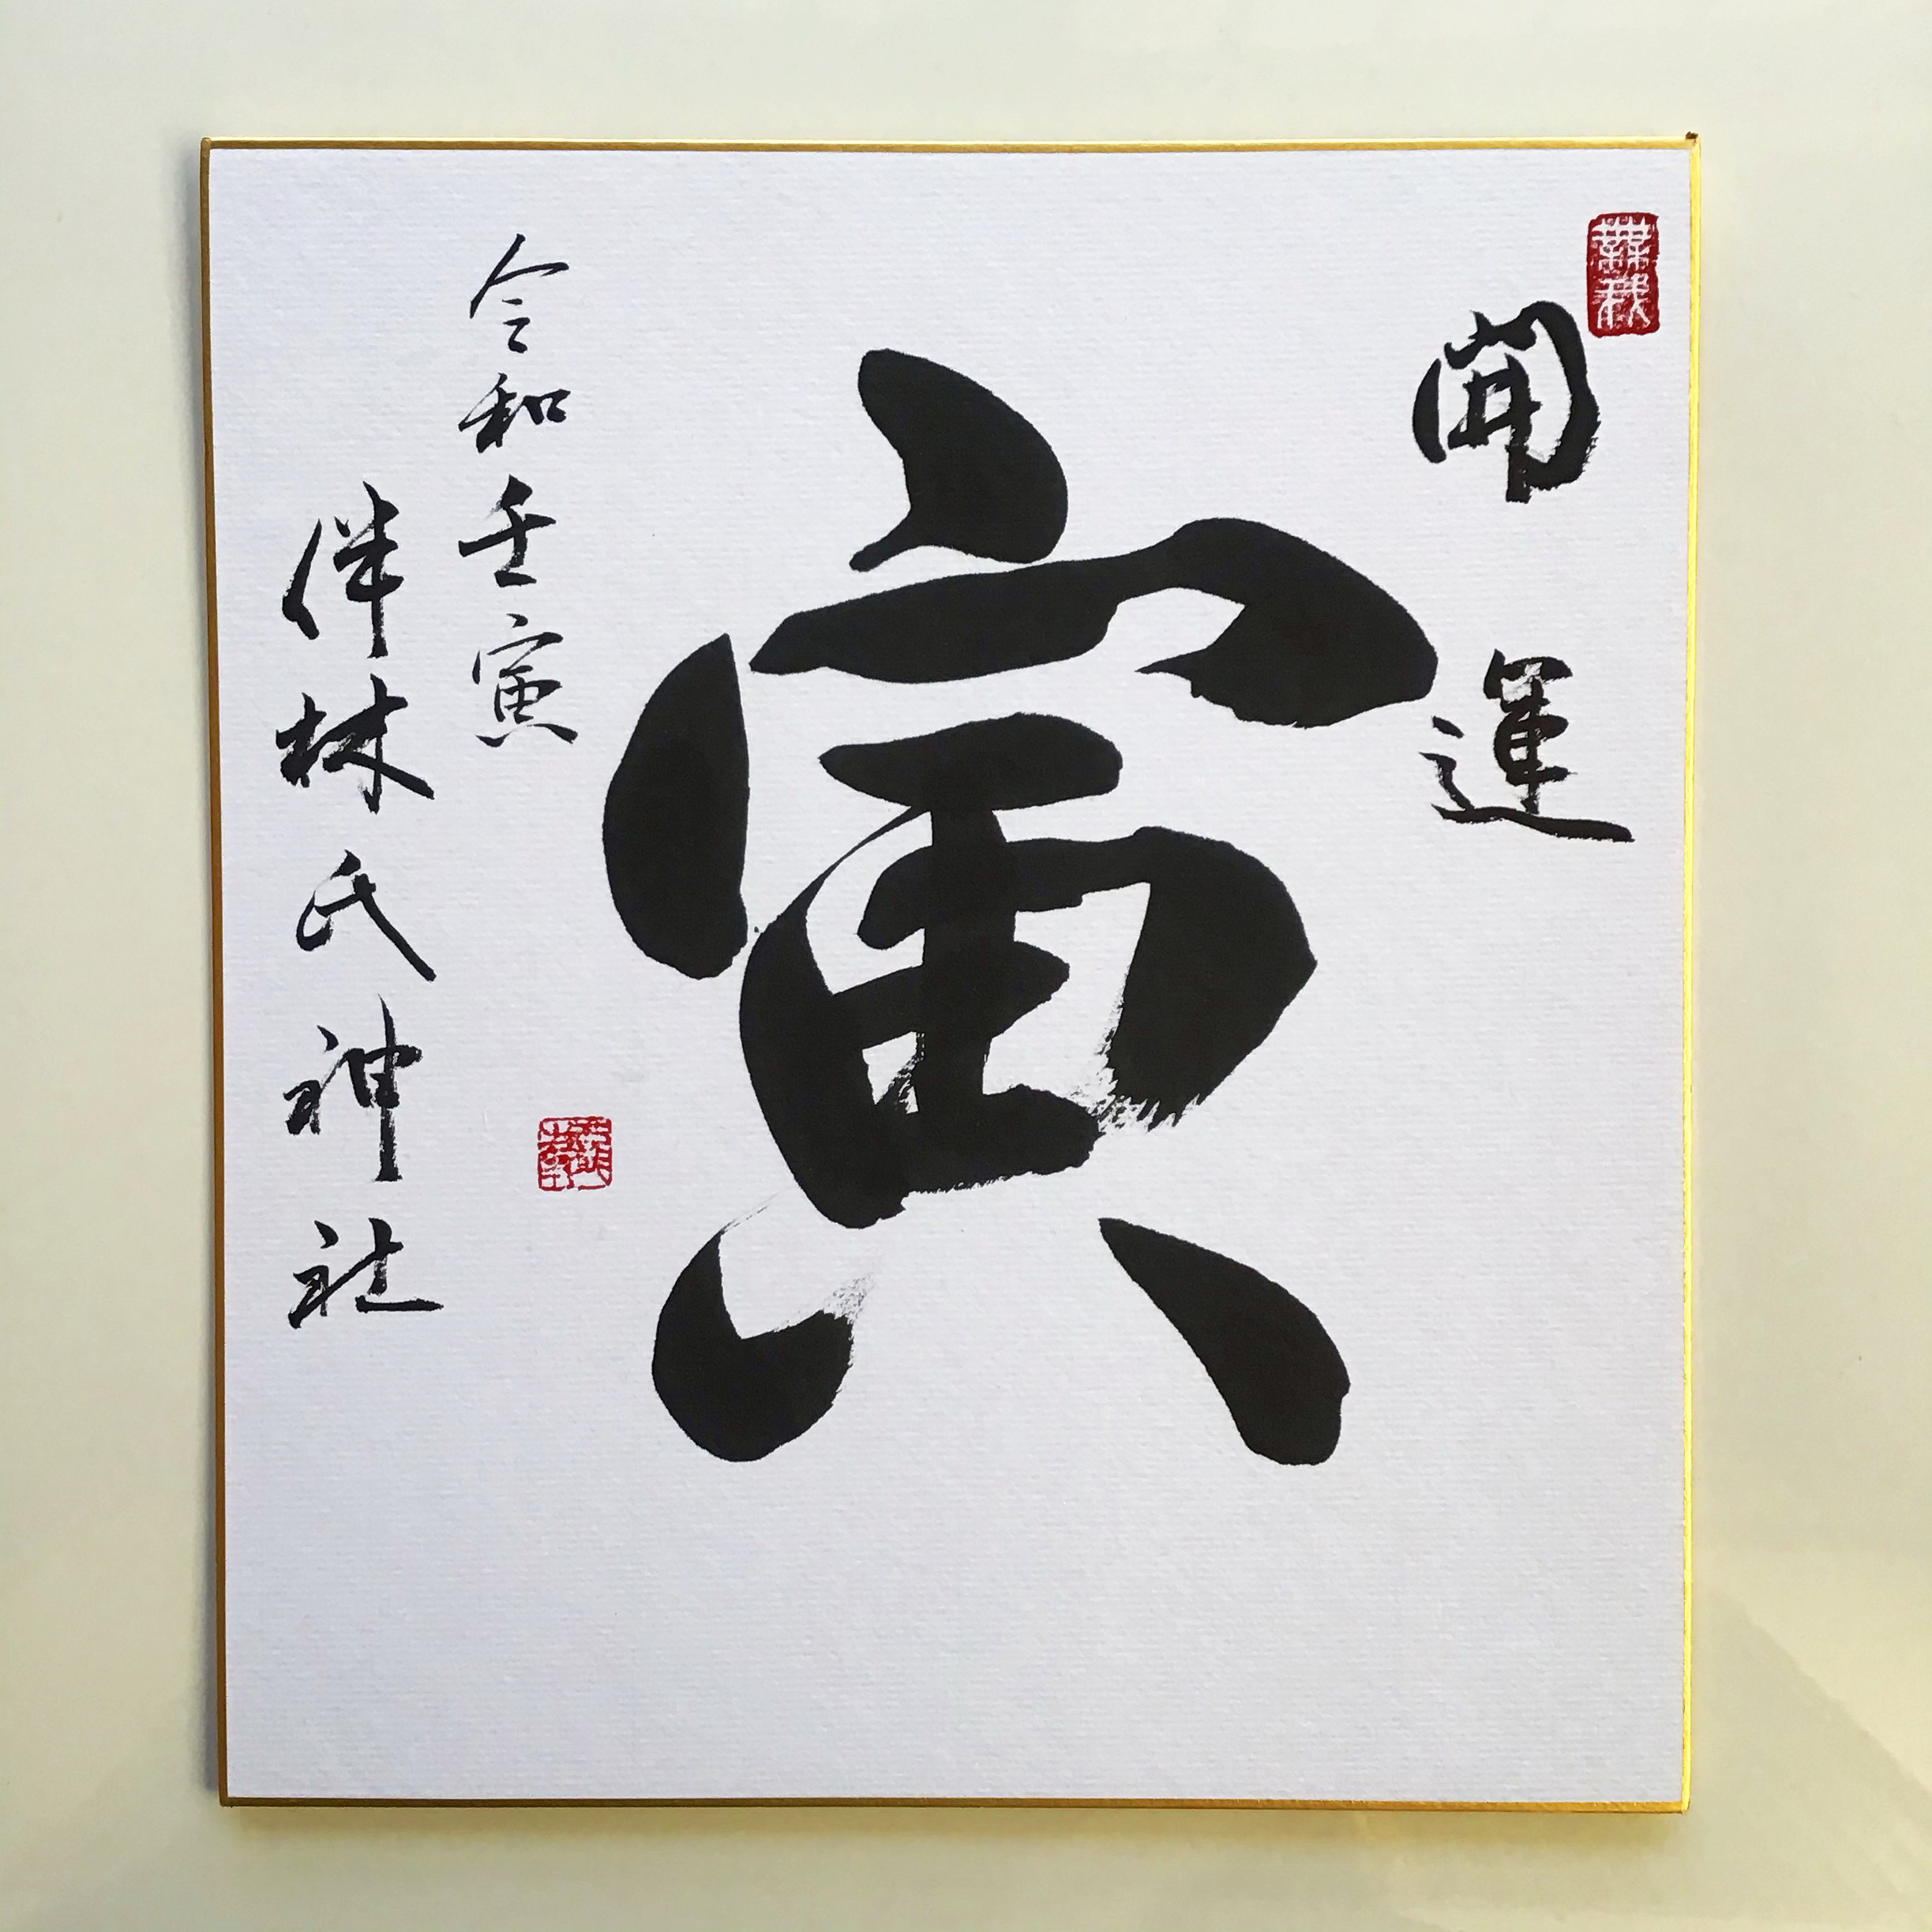 開運
寅
令和壬寅
伴林氏神社